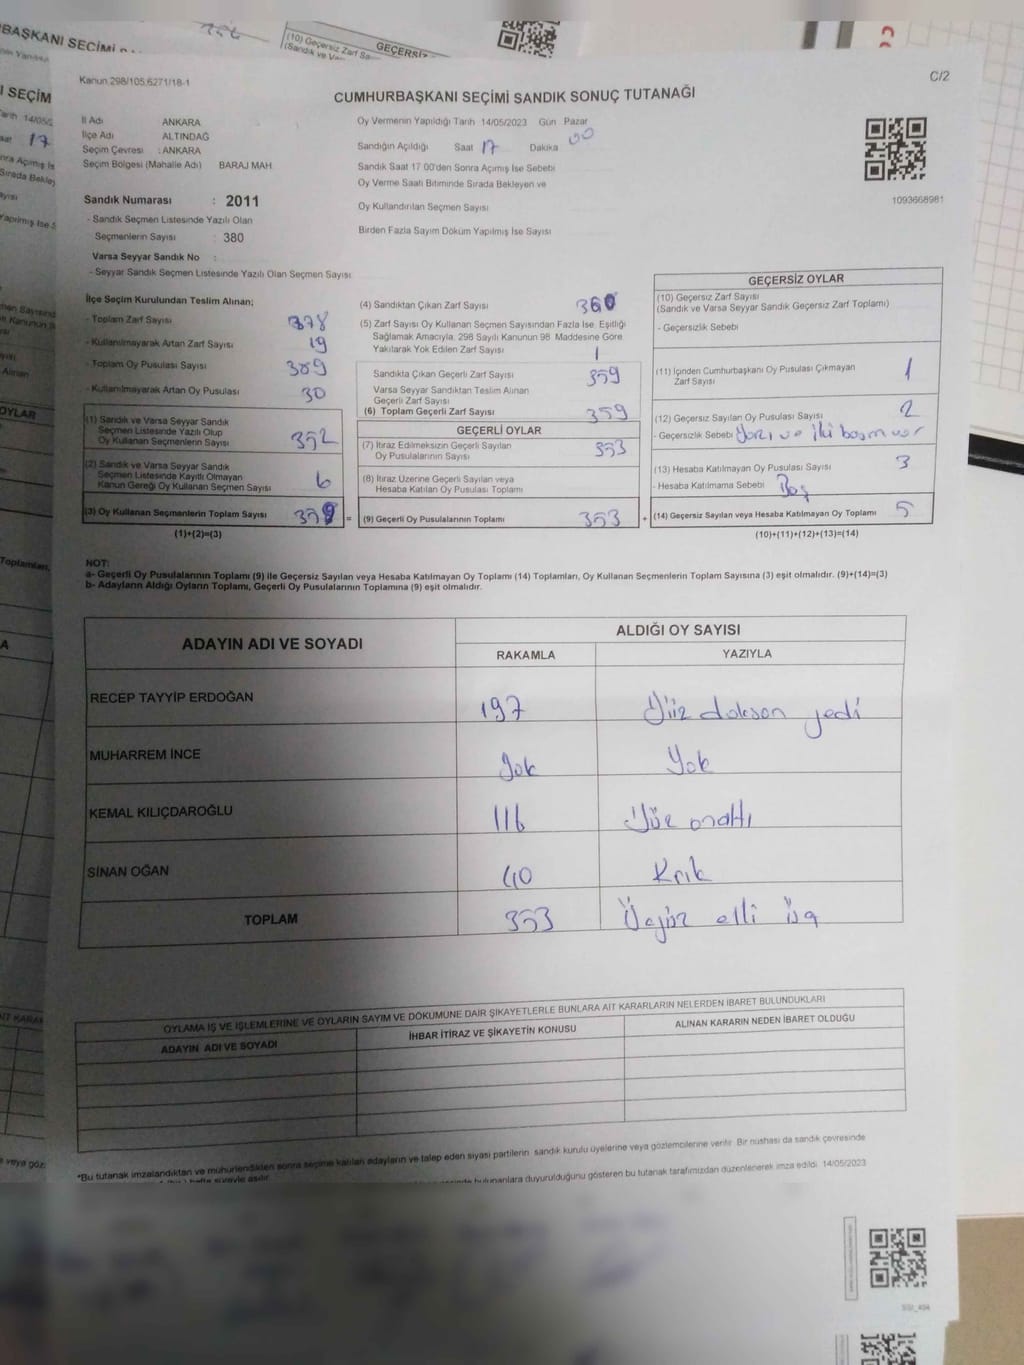 BAŞKANI SEÇİMİ
(10) Geçersiz Zarf Sa
(Sandık ve Va
GEÇERSİZ
Kanun 298/105.6271/18-1
C/2
CUMHURBAŞKANI SEÇİMİ SANDIK SONUÇ TUTANAĞI
İl Adı ANKARA
İlçe Adı ALTINDAĞ
Seçim Çevresi : ANKARA
Seçim Bölgesi (Mahalle Adı) BARAJ MAH
Oy Vermenin Yapıldığı Tarih 14/05/2023 Gün Pazar
Sandığın Açıldığı Saat 17 Dakika 00
Sandık Saat 17 00'den Sonra Açımış İse Sebebi
Oy Verme Saati Bitiminde Sırada Bekleyen ve
Oy Kullandırılan Seçmen Sayısı
Birden Fazla Sayım Döküm Yapılmış İse Sayısı
1093668981
Sandık Numarası : 2011
- Sandık Seçmen Listesinde Yazılı Olan
Seçmenlerin Sayısı : 380
Varsa Seyyar Sandık No :
- Seyyar Sandık Seçmen Listesinde Yazılı Olan Seçmen Sayısı
İlçe Seçim Kurulundan Teslim Alınan;
- Toplam Zarf Sayısı 378
- Kullanılmayarak Artan Zarf Sayısı 19
- Toplam Oy Pusulası Sayısı 389
- Kullanılmayarak Artan Oy Pusulası 30
(1) Sandık ve Varsa Seyyar Sandık
Seçmen Listesinde Yazılı Olup
Oy Kullanan Seçmenlerin Sayısı 352
(2) Sandık ve Varsa Seyyar Sandık
Seçmen Listesinde Kayıtlı Olmayan
Kanun Gereği Oy Kullanan Seçmen Sayısı 6
(3) Oy Kullanan Seçmenlerin Toplam Sayısı
(1)+(2)=(3)
(4) Sandıktan Çıkan Zarf Sayısı 360
(5) Zarf Sayısı Oy Kullanan Seçmen Sayısından Fazla İse, Eşitliği
Sağlamak Amacıyla, 298 Sayılı Kanunun 98 Maddesine Göre
Yakılarak Yok Edilen Zarf Sayısı 1
Sandıkta Çıkan Geçerli Zarf Sayısı 359
Varsa Seyyar Sandıktan Teslim Alınan
Geçerli Zarf Sayısı
(6) Toplam Geçerli Zarf Sayısı 359
GEÇERLİ OYLAR
(7) İtiraz Edilmeksizin Geçerli Sayılan
Oy Pusulalarının Sayısı 353
(8) İtiraz Üzerine Geçerli Sayılan veya
Hesaba Katılan Oy Pusulası Toplamı
= (9) Geçerli Oy Pusulalarının Toplamı 353
GEÇERSİZ OYLAR
(10) Geçersiz Zarf Sayısı
(Sandık ve Varsa Seyyar Sandık Geçersiz Zarf Toplamı)
- Geçersizlik Sebebi
(11) İçinden Cumhurbaşkanı Oy Pusulası Çıkmayan
Zarf Sayısı 1
(12) Geçersiz Sayılan Oy Pusulası Sayısı 2
- Geçersizlik Sebebi Yazı ve iki basım var
(13) Hesaba Katılmayan Oy Pusulası Sayısı 3
- Hesaba Katılmama Sebebi Boş
+ (14) Geçersiz Sayılan veya Hesaba Katılmayan Oy Toplamı 5
(10)+(11)+(12)+(13)=(14)
NOT:
a- Geçerli Oy Pusulalarının Toplamı (9) ile Geçersiz Sayılan veya Hesaba Katılmayan Oy Toplamı (14) Toplamları, Oy Kullanan Seçmenlerin Toplam Sayısına (3) eşit olmalıdır. (9)+(14)=(3)
b- Adayların Aldığı Oyların Toplamı, Geçerli Oy Pusulalarının Toplamına (9) eşit olmalıdır.
ADAYIN ADI VE SOYADI
ALDIĞI OY SAYISI
RAKAMLA YAZIYLA
RECEP TAYYİP ERDOĞAN 197 Yüz doksan yedi
MUHARREM İNCE yok Yok
KEMAL KILIÇDAROĞLU 116 Yüz onaltı
SİNAN OĞAN 40 Kırk
TOPLAM 353 Üçyüz elli üç
OYLAMA İŞ VE İŞLEMLERİNE VE OYLARIN SAYIM VE DÖKÜMÜNE DAİR ŞİKAYETLERLE BUNLARA AİT KARARLARIN NELERDEN İBARET BULUNDUKLARI
ADAYIN ADI VE SOYADI İHBAR İTİRAZ VE ŞİKAYETİN KONUSU ALINAN KARARIN NEDEN İBARET OLDUĞU
*Bu tutanak imzalandıktan ve mühürlendikten sonra seçime katılan adayların ve talep eden siyasi partilerin sandık kurulu üyelerine veya gözlemcilerine verilir. Bir nüshası da sandık çevresinde
bulunanlara duyurulduğunu gösteren bu tutanak tarafımızdan düzenlenerek imza edildi. 14/05/2023